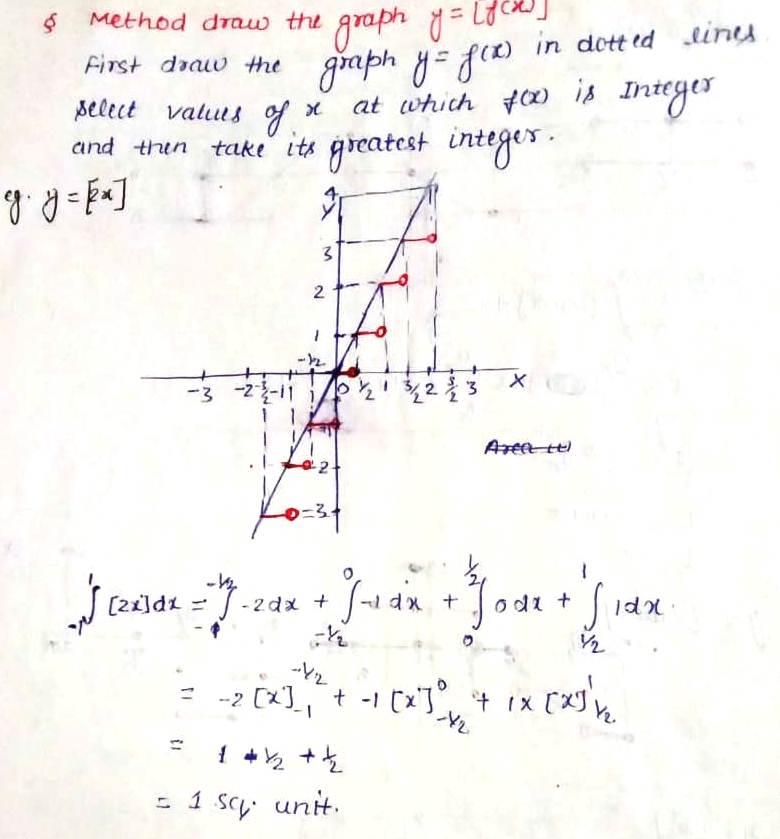 § Method draw the graph y = [f(x)]
First draw the graph y = f(x) in dotted lines
select values of x at which f(x) is Integer
and then take its greatest integer.
eg. y = [2x]
4
y
3
2
1
-1/2
-3 -2 -3/2 -1 0 1/2 1 3/2 2 5/2 3 X
-1
-2
-3
Area (t)
∫₋₁¹ [2x]dx = ∫₋₁^-1/2 -2dx + ∫₋1/2^0 -1 dx + ∫₀^1/2 0 dx + ∫1/2^1 1dx.
= -2 [x]₋₁^-1/2 + -1 [x]₋1/2^0 + 1 x [x]1/2^1
= 1 + 1/2 + 1/2
= 1 sq. unit.